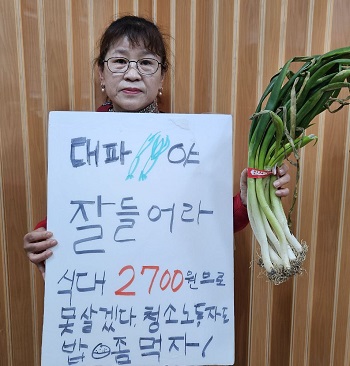 대파야
잘 들어라
식대 2700원으로
못살겠다, 청소노동자도
밥좀 먹자!